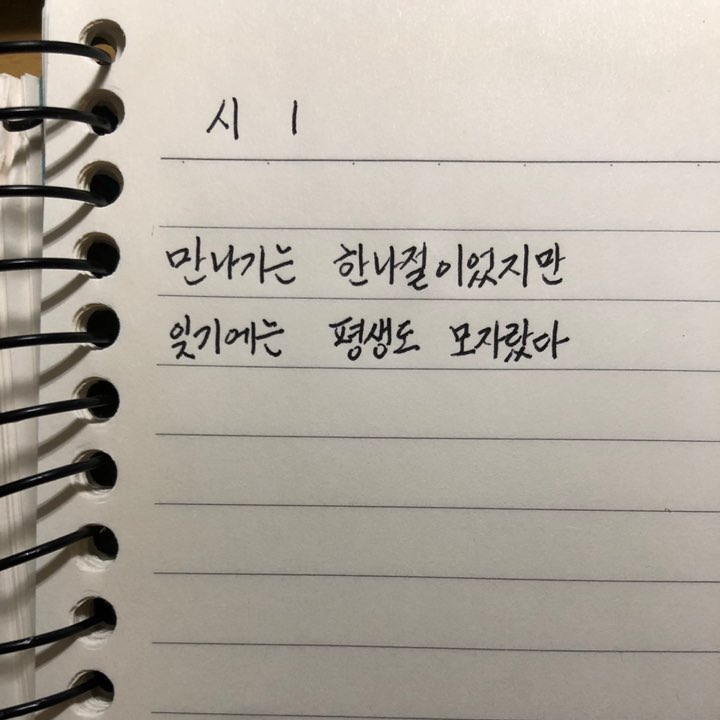 시 1
만나기는 한나절이었지만
잊기에는 평생도 모자랐다